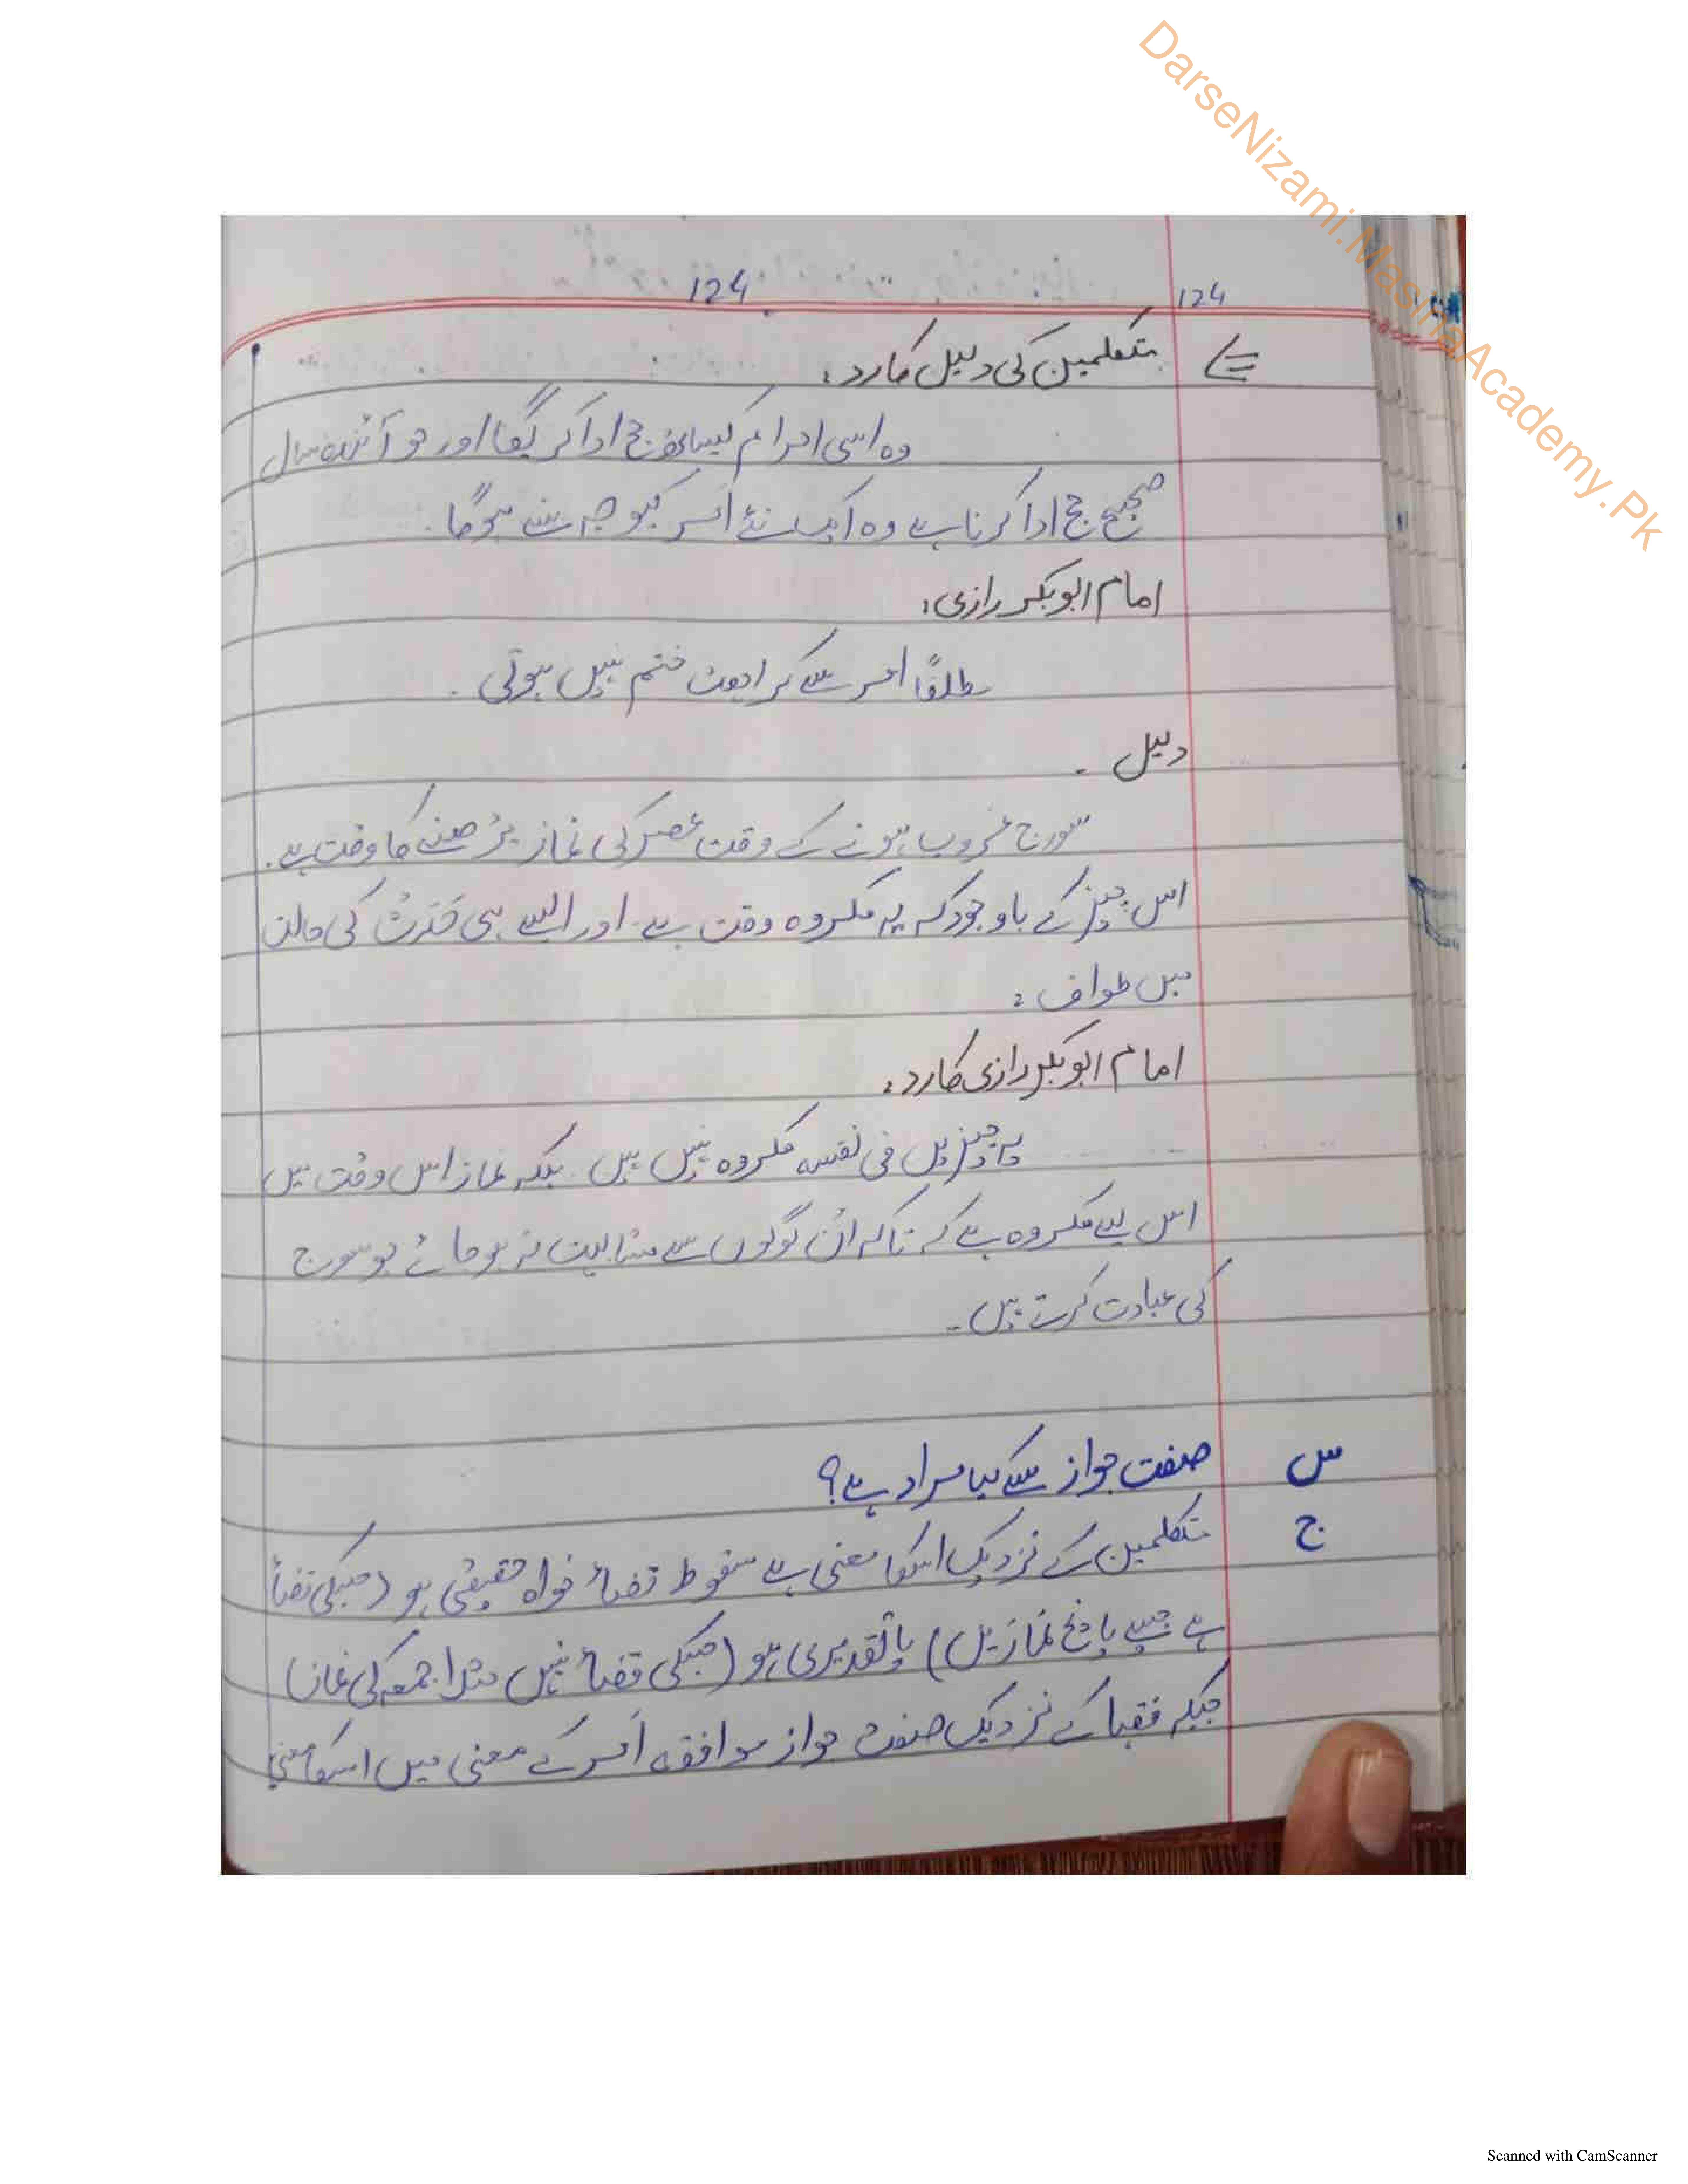 DarseNizami.MasihaAcademy.Pk
124 124
متکلمین کی دلیل کا رد:
وہ اسی احرام کیساتھ حج ادا کریگا اور جو آئندہ سال
صحیح حج ادا کرنا ہے وہ ایک نئے امر کیوجہ سے ہوگا.
امام ابوبکر رازی:
مطلقًا امر سے کراہت ختم نہیں ہوتی.
دلیل -
سورج غروب ہونے کے وقت عصر کی نماز پڑھنے کا وقت ہے.
اس چیز کے باوجود کہ یہ مکروہ وقت ہے اور ایسے ہی حَدَث کی حالت
میں طواف:
امام ابوبکر رازی کا رد:
یہ چیزیں فی نفسہ مکروہ نہیں ہیں بلکہ نماز اس وقت میں
اس لیے مکروہ ہے کہ تاکہ اُن لوگوں سے مشابہت نہ ہوجائے جو سورج
کی عبادت کرتے ہیں-
س صفت جواز سے کیا مراد ہے؟
ج متکلمین کے نزدیک اسکا معنی ہے سقوط قضاء خواہ حقیقی ہو (جسکی قضاء
ہے جیسے پانچ نمازیں) یا تقدیری ہو (جسکی قضاء نہیں مثلا جمعہ کی نماز)
جبکہ فقہا کے نزدیک صفت جواز موافقہ امر کے معنی میں اسکا معنی
Scanned with CamScanner